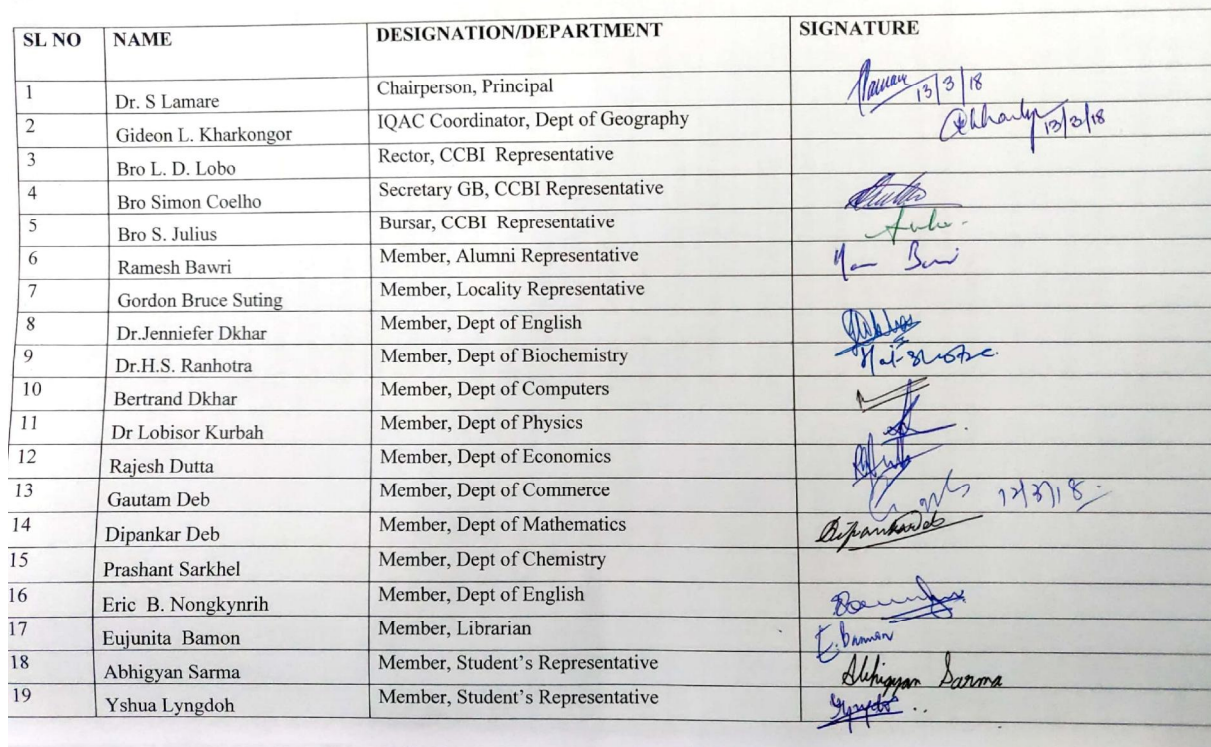 SL NO NAME DESIGNATION/DEPARTMENT SIGNATURE
1 Dr. S Lamare Chairperson, Principal 13/3/18
2 Gideon L. Kharkongor IQAC Coordinator, Dept of Geography 13/3/18
3 Bro L. D. Lobo Rector, CCBI Representative
4 Bro Simon Coelho Secretary GB, CCBI Representative
5 Bro S. Julius Bursar, CCBI Representative
6 Ramesh Bawri Member, Alumni Representative
7 Gordon Bruce Suting Member, Locality Representative
8 Dr.Jenniefer Dkhar Member, Dept of English
9 Dr.H.S. Ranhotra Member, Dept of Biochemistry
10 Bertrand Dkhar Member, Dept of Computers
11 Dr Lobisor Kurbah Member, Dept of Physics
12 Rajesh Dutta Member, Dept of Economics
13 Gautam Deb Member, Dept of Commerce
14 Dipankar Deb Member, Dept of Mathematics Dipankar Deb
15 Prashant Sarkhel Member, Dept of Chemistry
16 Eric B. Nongkynrih Member, Dept of English
17 Eujunita Bamon Member, Librarian E. Bamon
18 Abhigyan Sarma Member, Student's Representative Abhigyan Sarma
19 Yshua Lyngdoh Member, Student's Representative